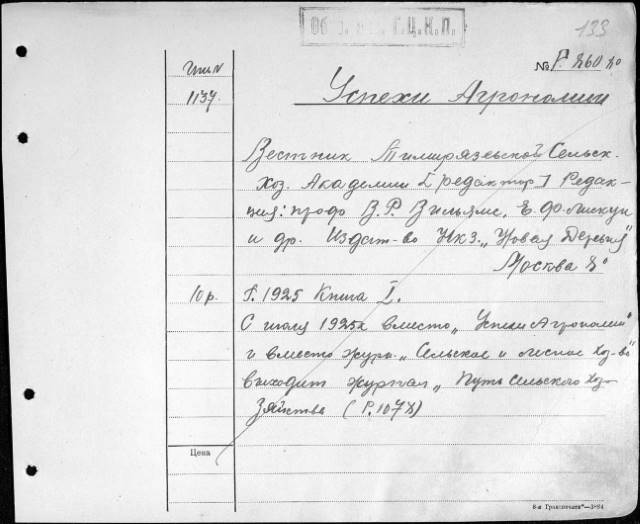 133
№ Р. 260 8º
1137.
Успехи Агрономии
Вестник Тимирязевской Сельск.
Хоз. Академии [редактор] Редак-
ция: проф. В. Р. Вильямс, Е. Ф. Лискун
и др. Издат-во Нкз. „Новая Деревня"
Москва 8º
10 р.
Г. 1925 Книга I.
С июля 1925г. вместо „Успехи Агрономии"
и вместо журн. „Сельское и лесное Хоз-во"
выходит журнал „Путь Сельского Хо-
зяйства (Р. 107 8)
Цена